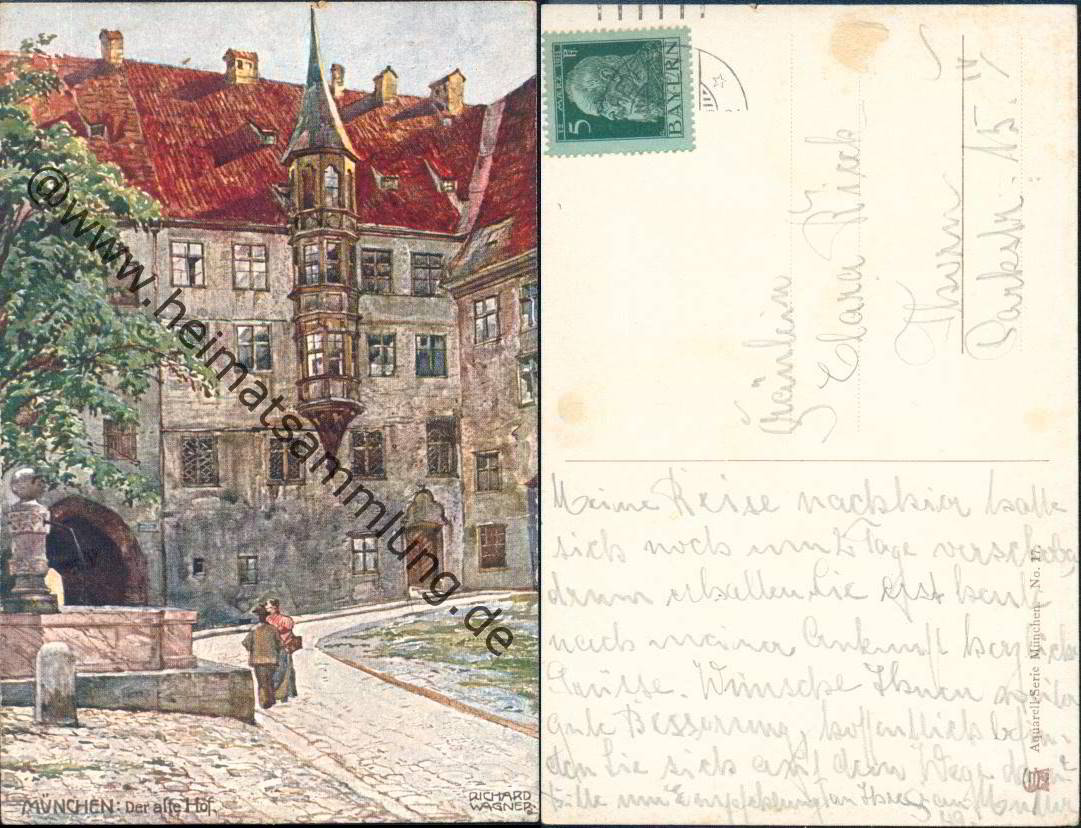 MÜNCHEN: Der alte Hof.
RICHARD
WAGNER
@www.heimatsammlung.de
5
BAYERN
Fräulein
Clara Rieck
Thorn
Parkstr. 15. IV
Meine Reise nach hier hatte
sich noch um 2 Tage verschoben
drum erhalten Sie erst heute
nach meiner Ankunft herzliche
Grüsse. Wünsche Ihnen weiter
gute Besserung, hoffentlich befin-
den Sie sich auf dem Wege dazu
Bitte um Empfehlung an Ihre Mutter
Aquarell-Serie München No. 17.